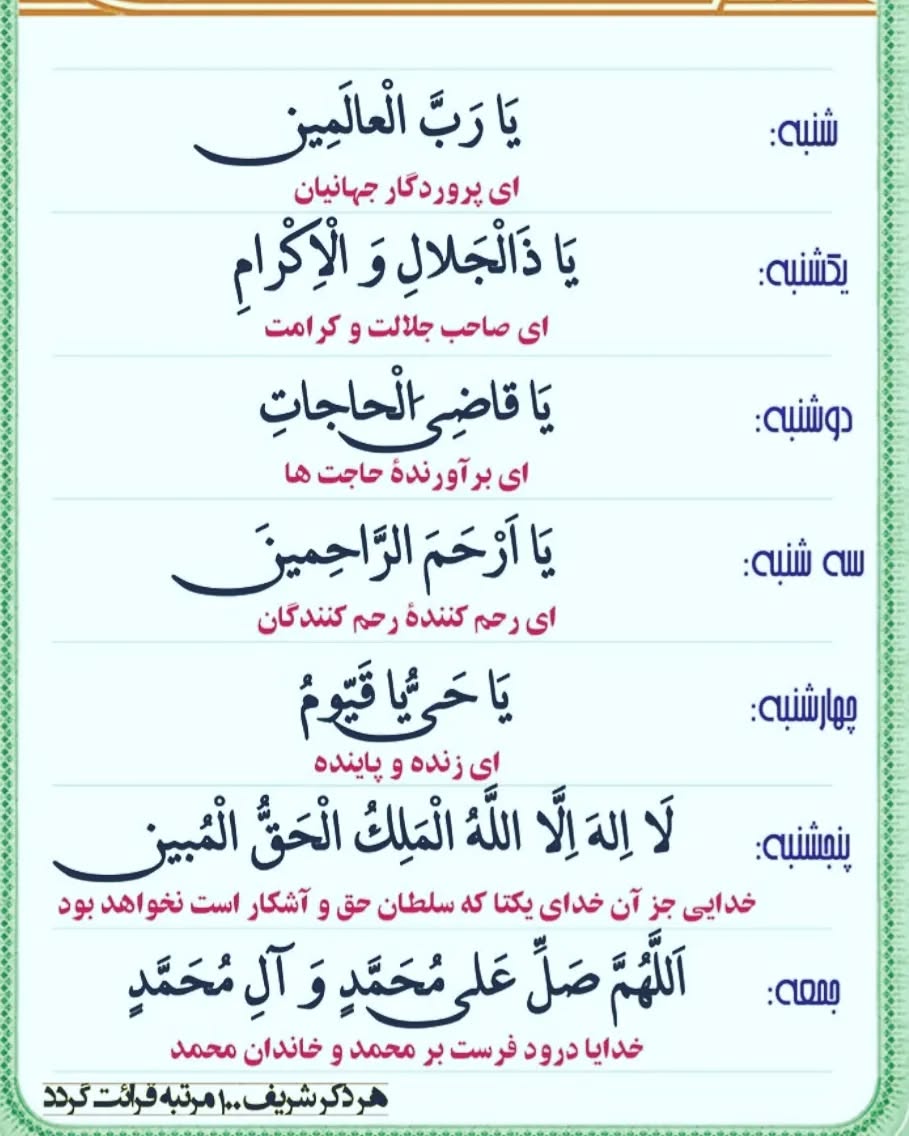 شنبه:
يَا رَبَّ الْعالَمِين
ای پروردگار جهانیان
یکشنبه:
يَا ذَالْجَلالِ وَ الْاِكْرامِ
ای صاحب جلالت و کرامت
دوشنبه:
يَا قاضِىَ الْحاجاتِ
ای برآورندهٔ حاجت ها
سه شنبه:
يَا اَرْحَمَ الرَّاحِمينَ
ای رحم کنندهٔ رحم کنندگان
چهارشنبه:
يَا حَىُّ يا قَيّومُ
ای زنده و پاینده
پنجشنبه:
لَا اِلهَ اِلَّا اللَّهُ الْمَلِكُ الْحَقُّ الْمُبين
خدایی جز آن خدای یکتا که سلطان حق و آشکار است نخواهد بود
جمعه:
اَللَّهُمَّ صَلِّ عَلى مُحَمَّدٍ وَ آلِ مُحَمَّدٍ
خدایا درود فرست بر محمد و خاندان محمد
هر ذکر شریف ۱۰۰ مرتبه قرائت گردد